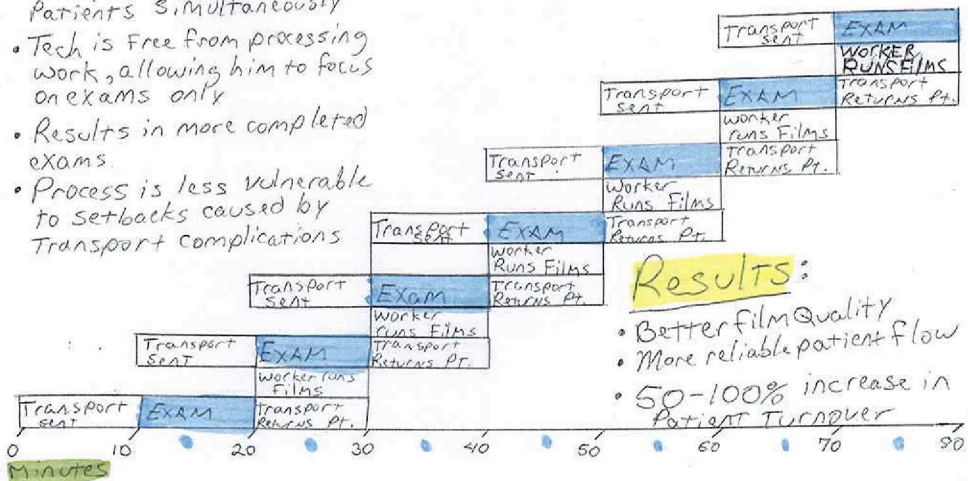 Patients Simultaneously
• Tech is Free from processing
work, allowing him to focus
on exams only
• Results in more completed
exams.
• Process is less vulnerable
to setbacks caused by
Transport complications
Transport
sent
EXAM
WORKER
RUNS Films
Transport
sent
EXAM
Transport
Returns Pt.
worker
runs Films
Transport
Sent
EXAM
Transport
Returns Pt.
Worker
Runs Films
Transport
sent
EXAM
Transport
Returns Pt.
Worker
Runs Films
Transport
sent
EXAM
Transport
Returns Pt.
Worker
runs Films
Transport
Sent
EXAM
Transport
Returns Pt.
Worker runs
Films
Transport
sent
EXAM
Transport
Returns Pt.
Results:
• Better film Quality
• More reliable patient flow
• 50-100% increase in
Patient Turnover
0 10 20 30 40 50 60 70 80
Minutes